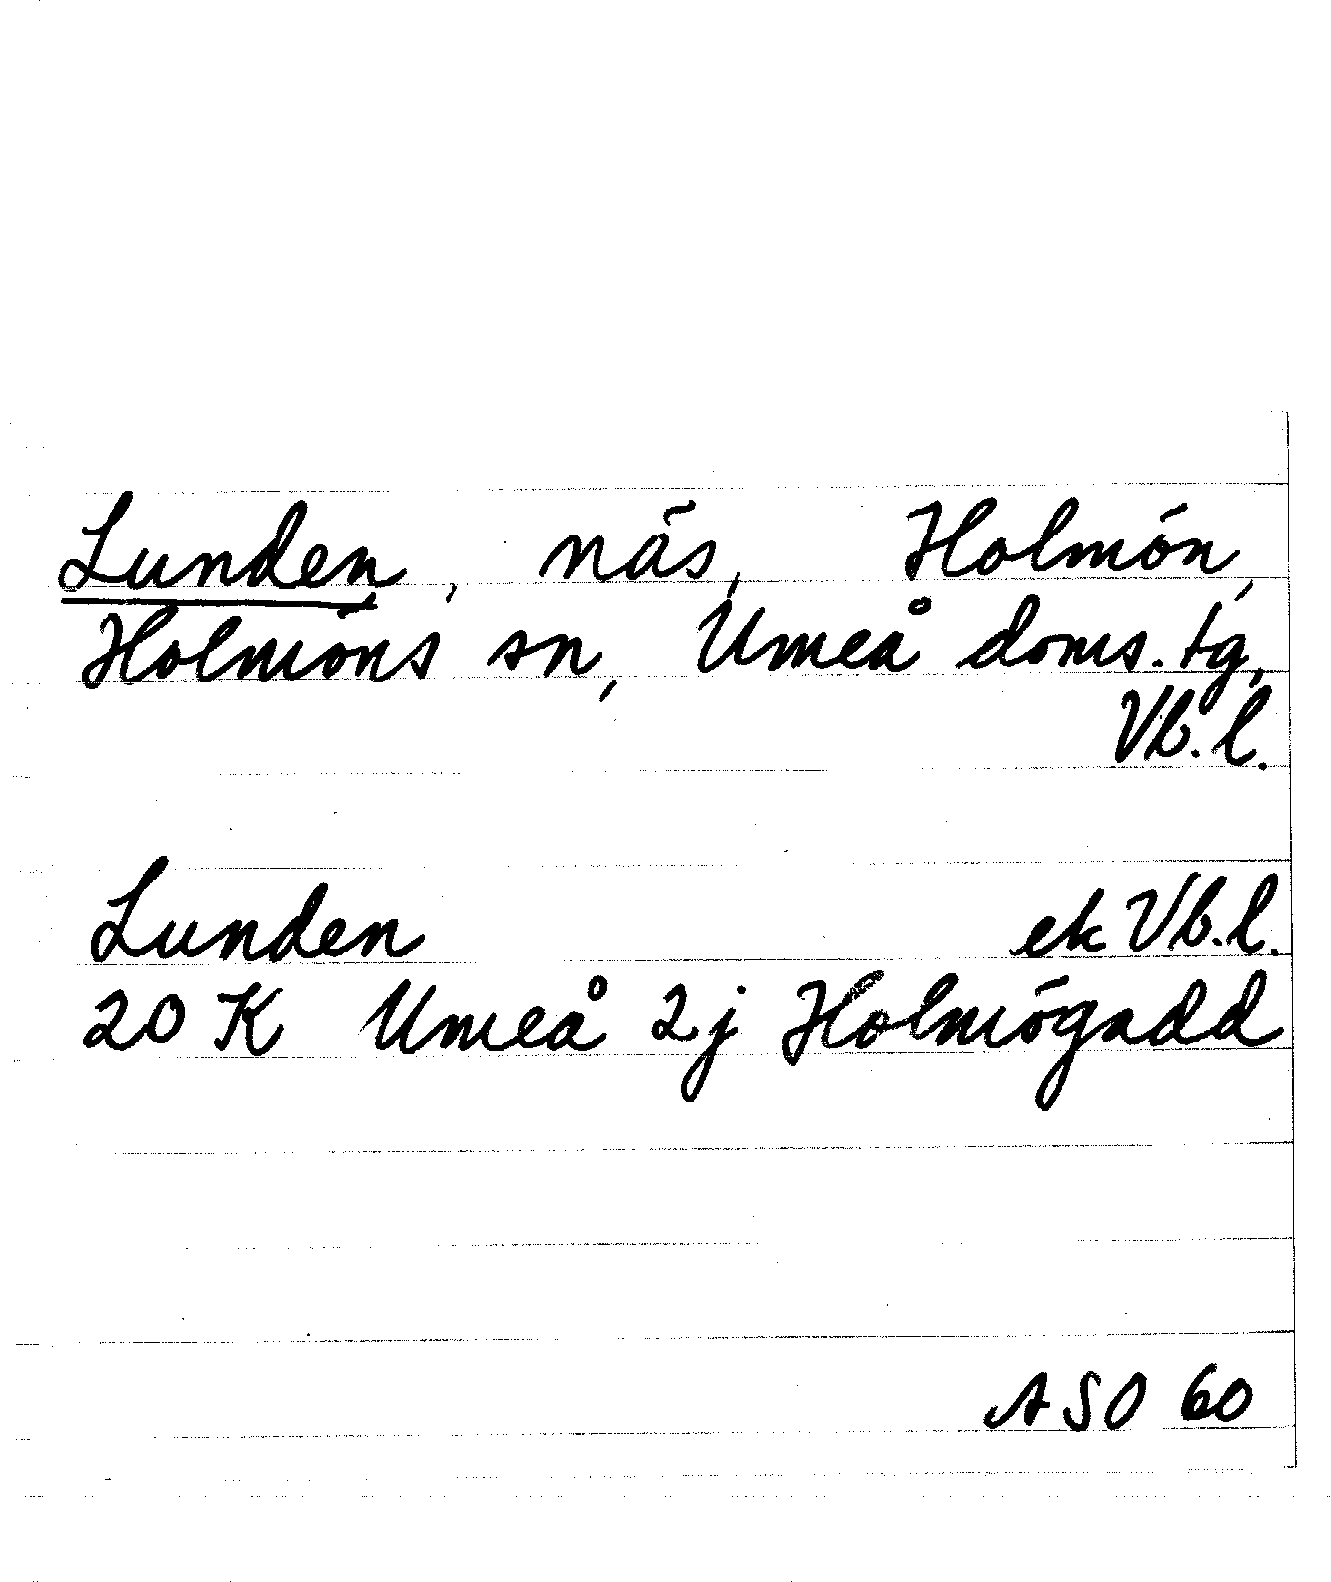 Lunden, näs, Holmön,
Holmöns sn, Umeå doms. tg,
Vb. l.
Lunden ek Vb. l.
20 K Umeå 2j Holmögadd
ASO 60